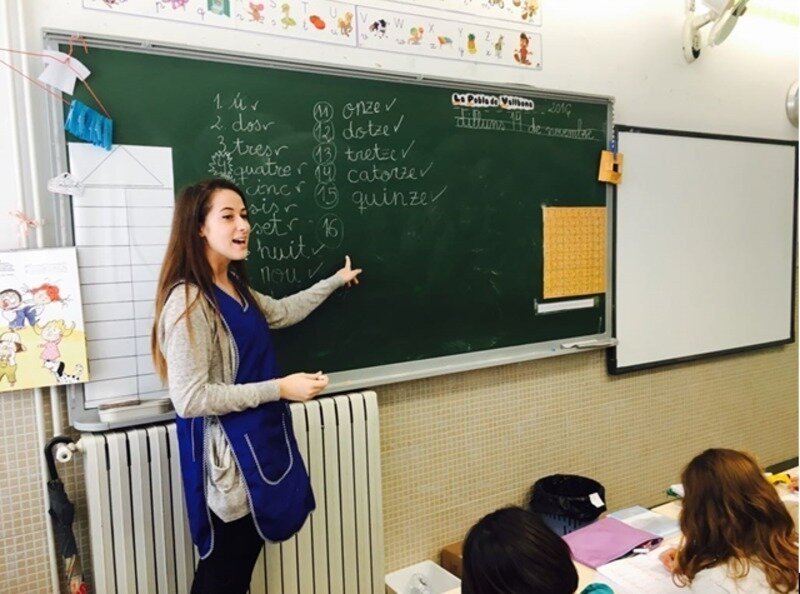 1. ú
2. dos
3. tres
4 quatre
cinc
sis
set
huit
nou
11 onze
12 dotze
13 tretze
14 catorze
15 quinze
16
La Pobla de Vallbona
dilluns 14 de novembre